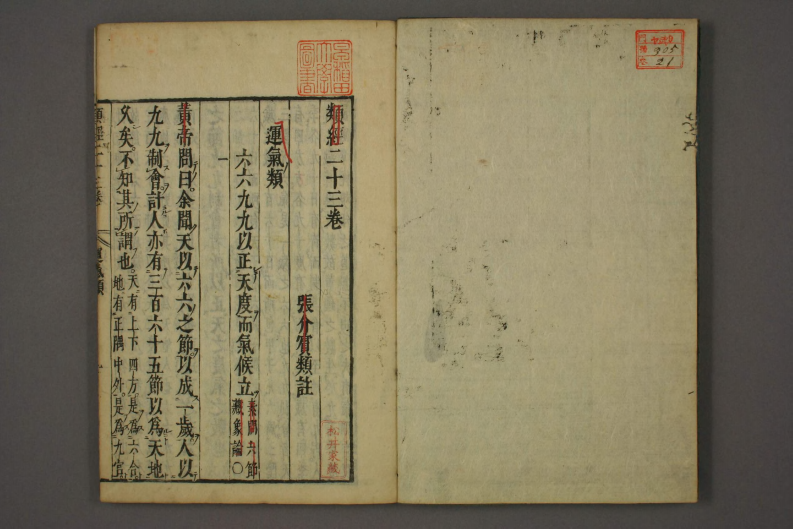 類經二十三卷
張介賓類註
運氣類
六六九九以正天度而氣候立
素問六節
藏象論○
一
黃帝問曰余聞天以六六之節以成一歲人以
九九制會計人亦有三百六十五節以爲天地
久矣不知其所謂也
天有上下四方是爲六合
地有正隅中外是爲九宮
類經二十三卷
運氣類
松井家藏
905
21